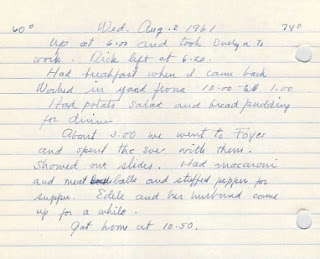 60° Wed. Aug. 2 1961 74°
Up at 6:00 and took Evelyn to
work. Dick left at 6:20.
Had breakfast when I came back
Worked in yard from 10:00 - 1:00.
Had potato salad and bread pudding
for dinner
About 3:00 we went to Foyer
and spent the with them.
Showed our slides. Had macaroni
and meat balls and stuffed pepper for
supper. Edele and her husband came
up for a while.
Got home at 10:50.